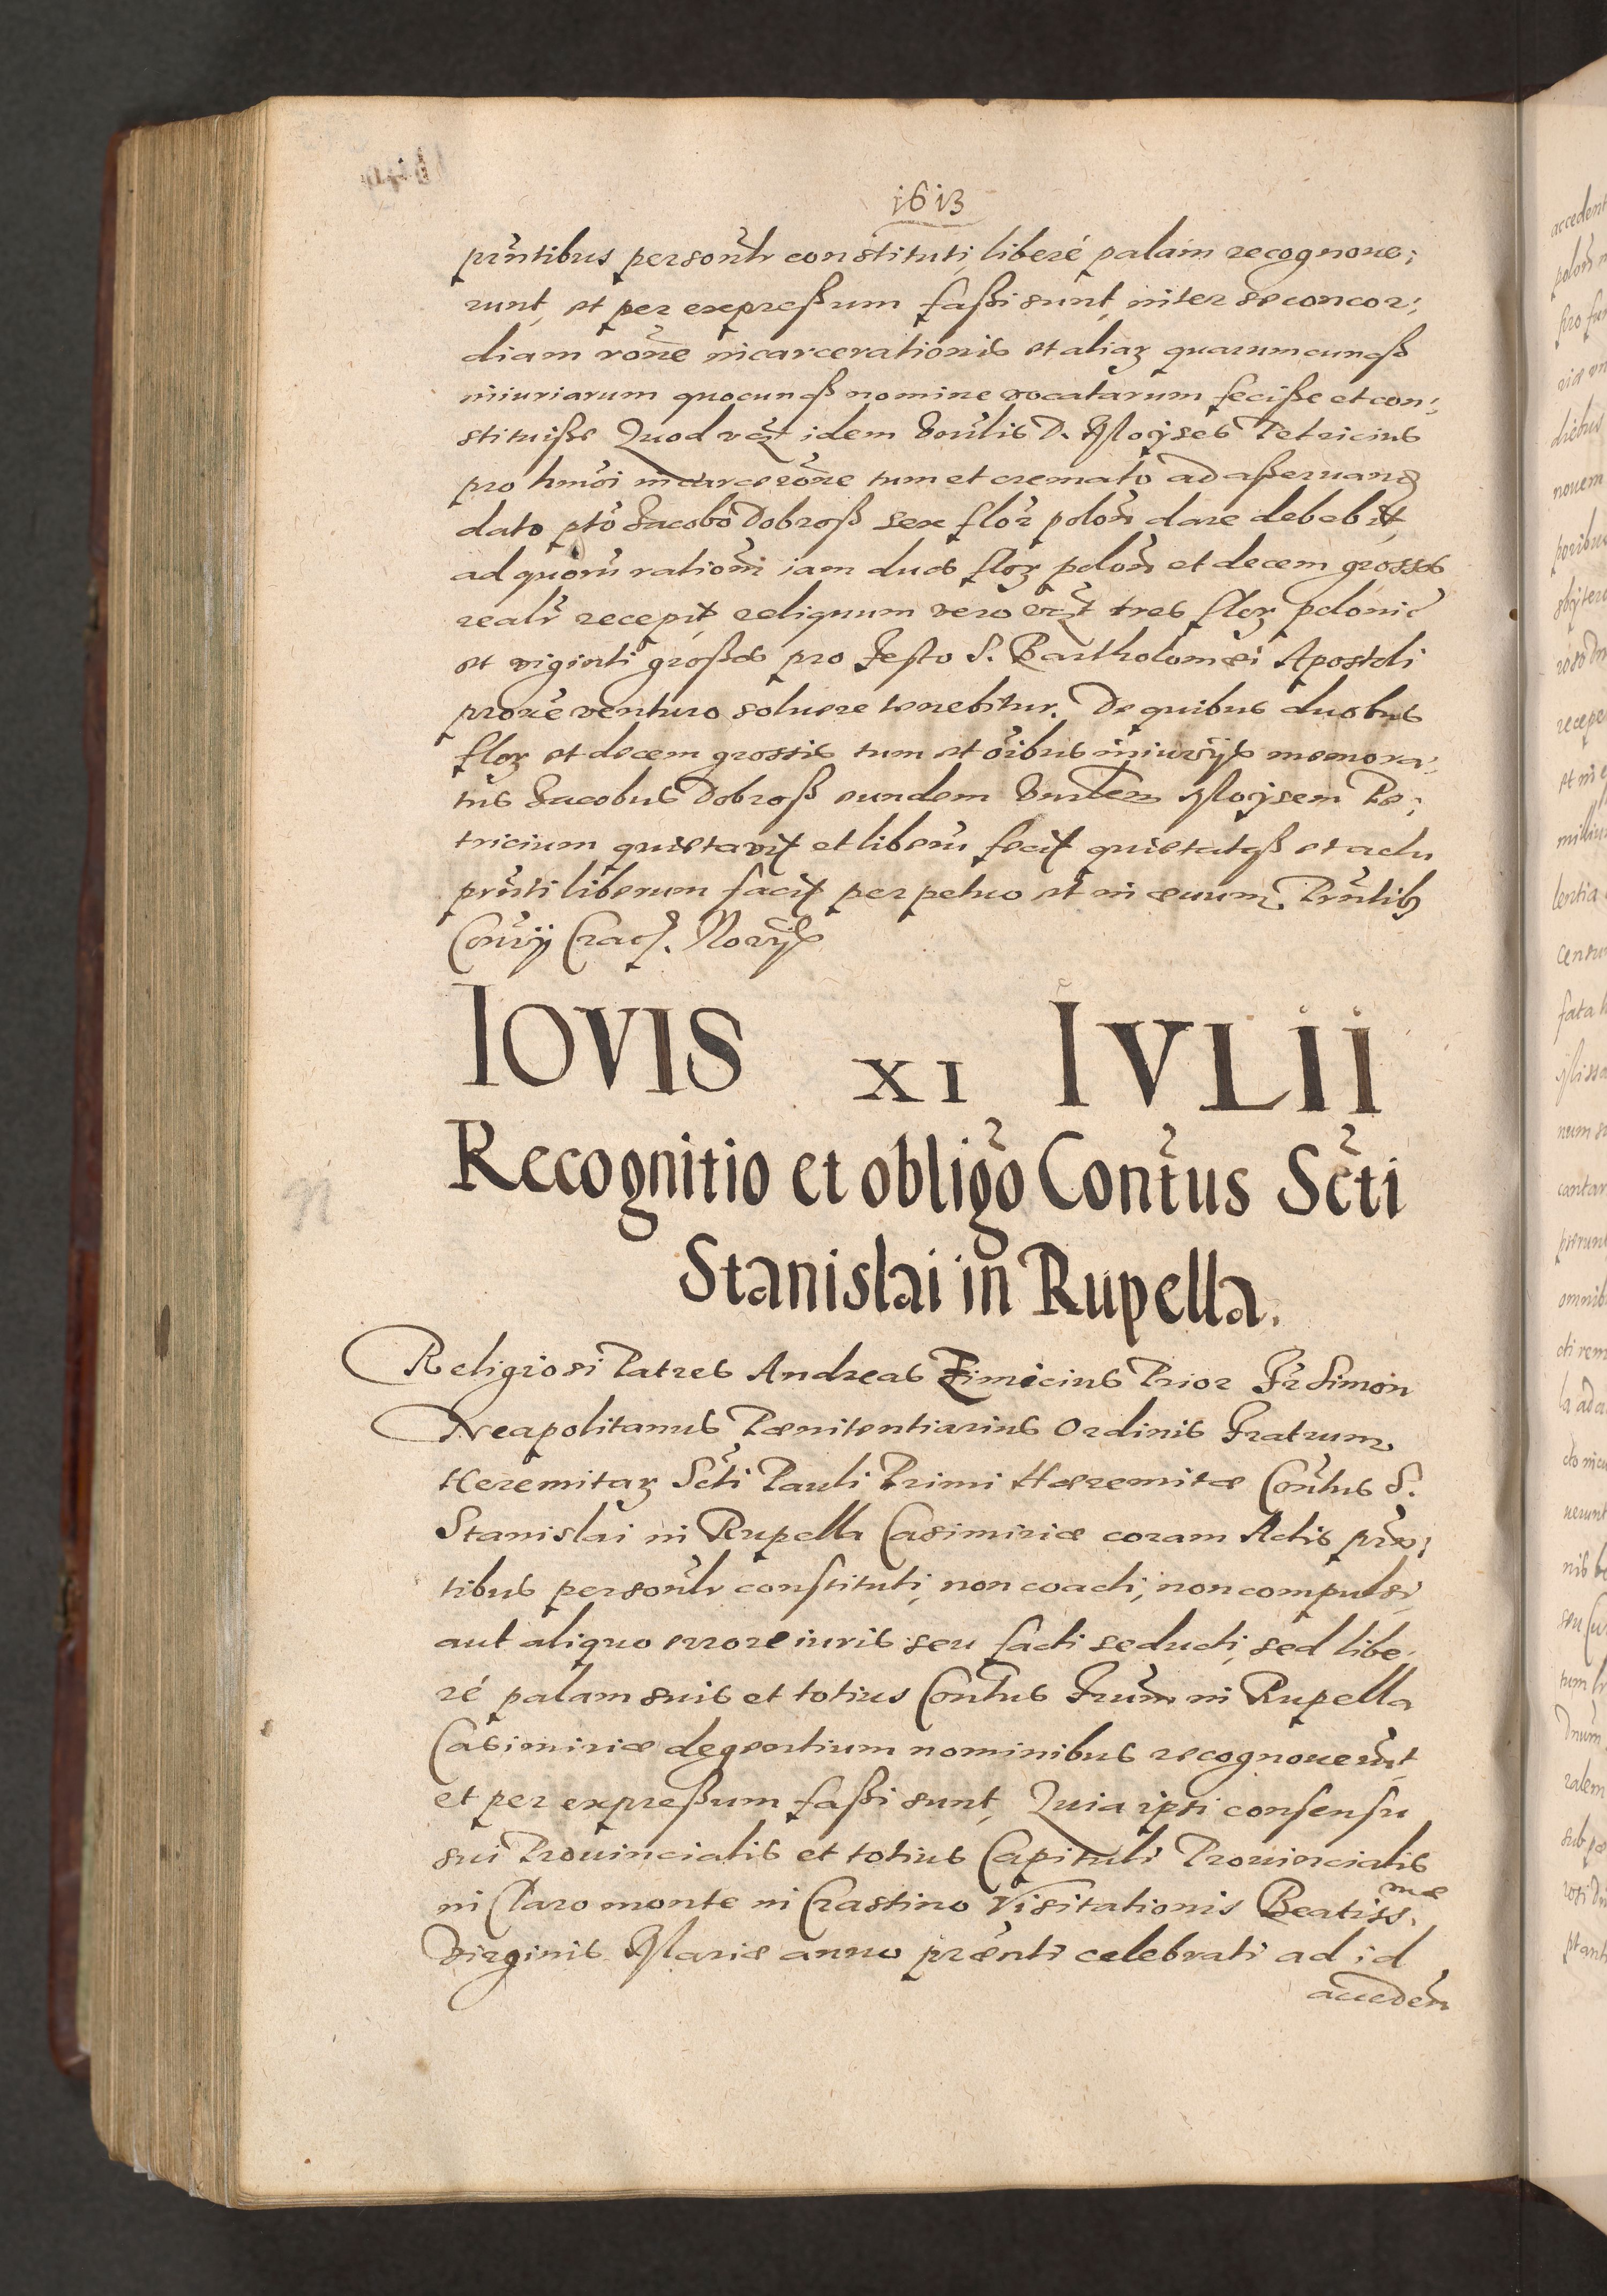 1613
prńtibus personłr constituti, liberé palam recognoue:
runt, et per expreßum faßi sunt, inter se concor:
diam rõne incarcerationis et aliaꝝ quarumcunqß
iniuriarum quocunqß nomine vocatarum feciße et con:
stituiße Quod idem D. Moÿses Petricius
pro hmõi incarcerõne tum et cremato ad aßeruand
dato pto Jacobo Dobroß sex flor polon dare debebit,
ad quorũ rationẽ iam duos floꝝ polon et decem grossos
realr recepit, reliquum vero vꝫt tres floꝝ polonic
et viginti großos pro Festo S. Bartholomæi Apostoli
proxe venturo soluere tenebitur. De quibus duobus
floꝝ et decem grossis tum et oĩbus iniurijs memora:
tus Jacobus Dobroß eundem Moÿsem Pe:
tricium quietavit et liberũ fecit quietatqß et actu
prñti liberum facit perpetuo et in æuum. Prñtibꝫ
IOVIS XI IVLII
Recognitio et obligõ Conṽtus Scti
Stanislai in Rupella.
Religiosi Patres Andreas Zimicius Prior Fr Simon
Neapolitanus Pænitentiarius Ordinis Fratrum
Heremitaꝝ Scti Pauli Primi Hæremitæ Conṽtus S.
Stanislai in Rupella Casimiriæ coram Actis præn:
tibus personłr constituti, non coacti, non compulsi,
aut aliquo errore iuris seu facti seducti, sed libe:
ré palam suis et totius Conṽtus Frum in Rupella
Casimiriæ degentium nominibus recognouerũt,
et per expreßum faßi sunt, Quia ipsi consensu
sui Prouincialis et totius Capituli Prouincialis
in Claro monte in Crastino Visitationis Beatiss.mæ
Virginis Mariæ anno prænti celebrati ad id
acceden